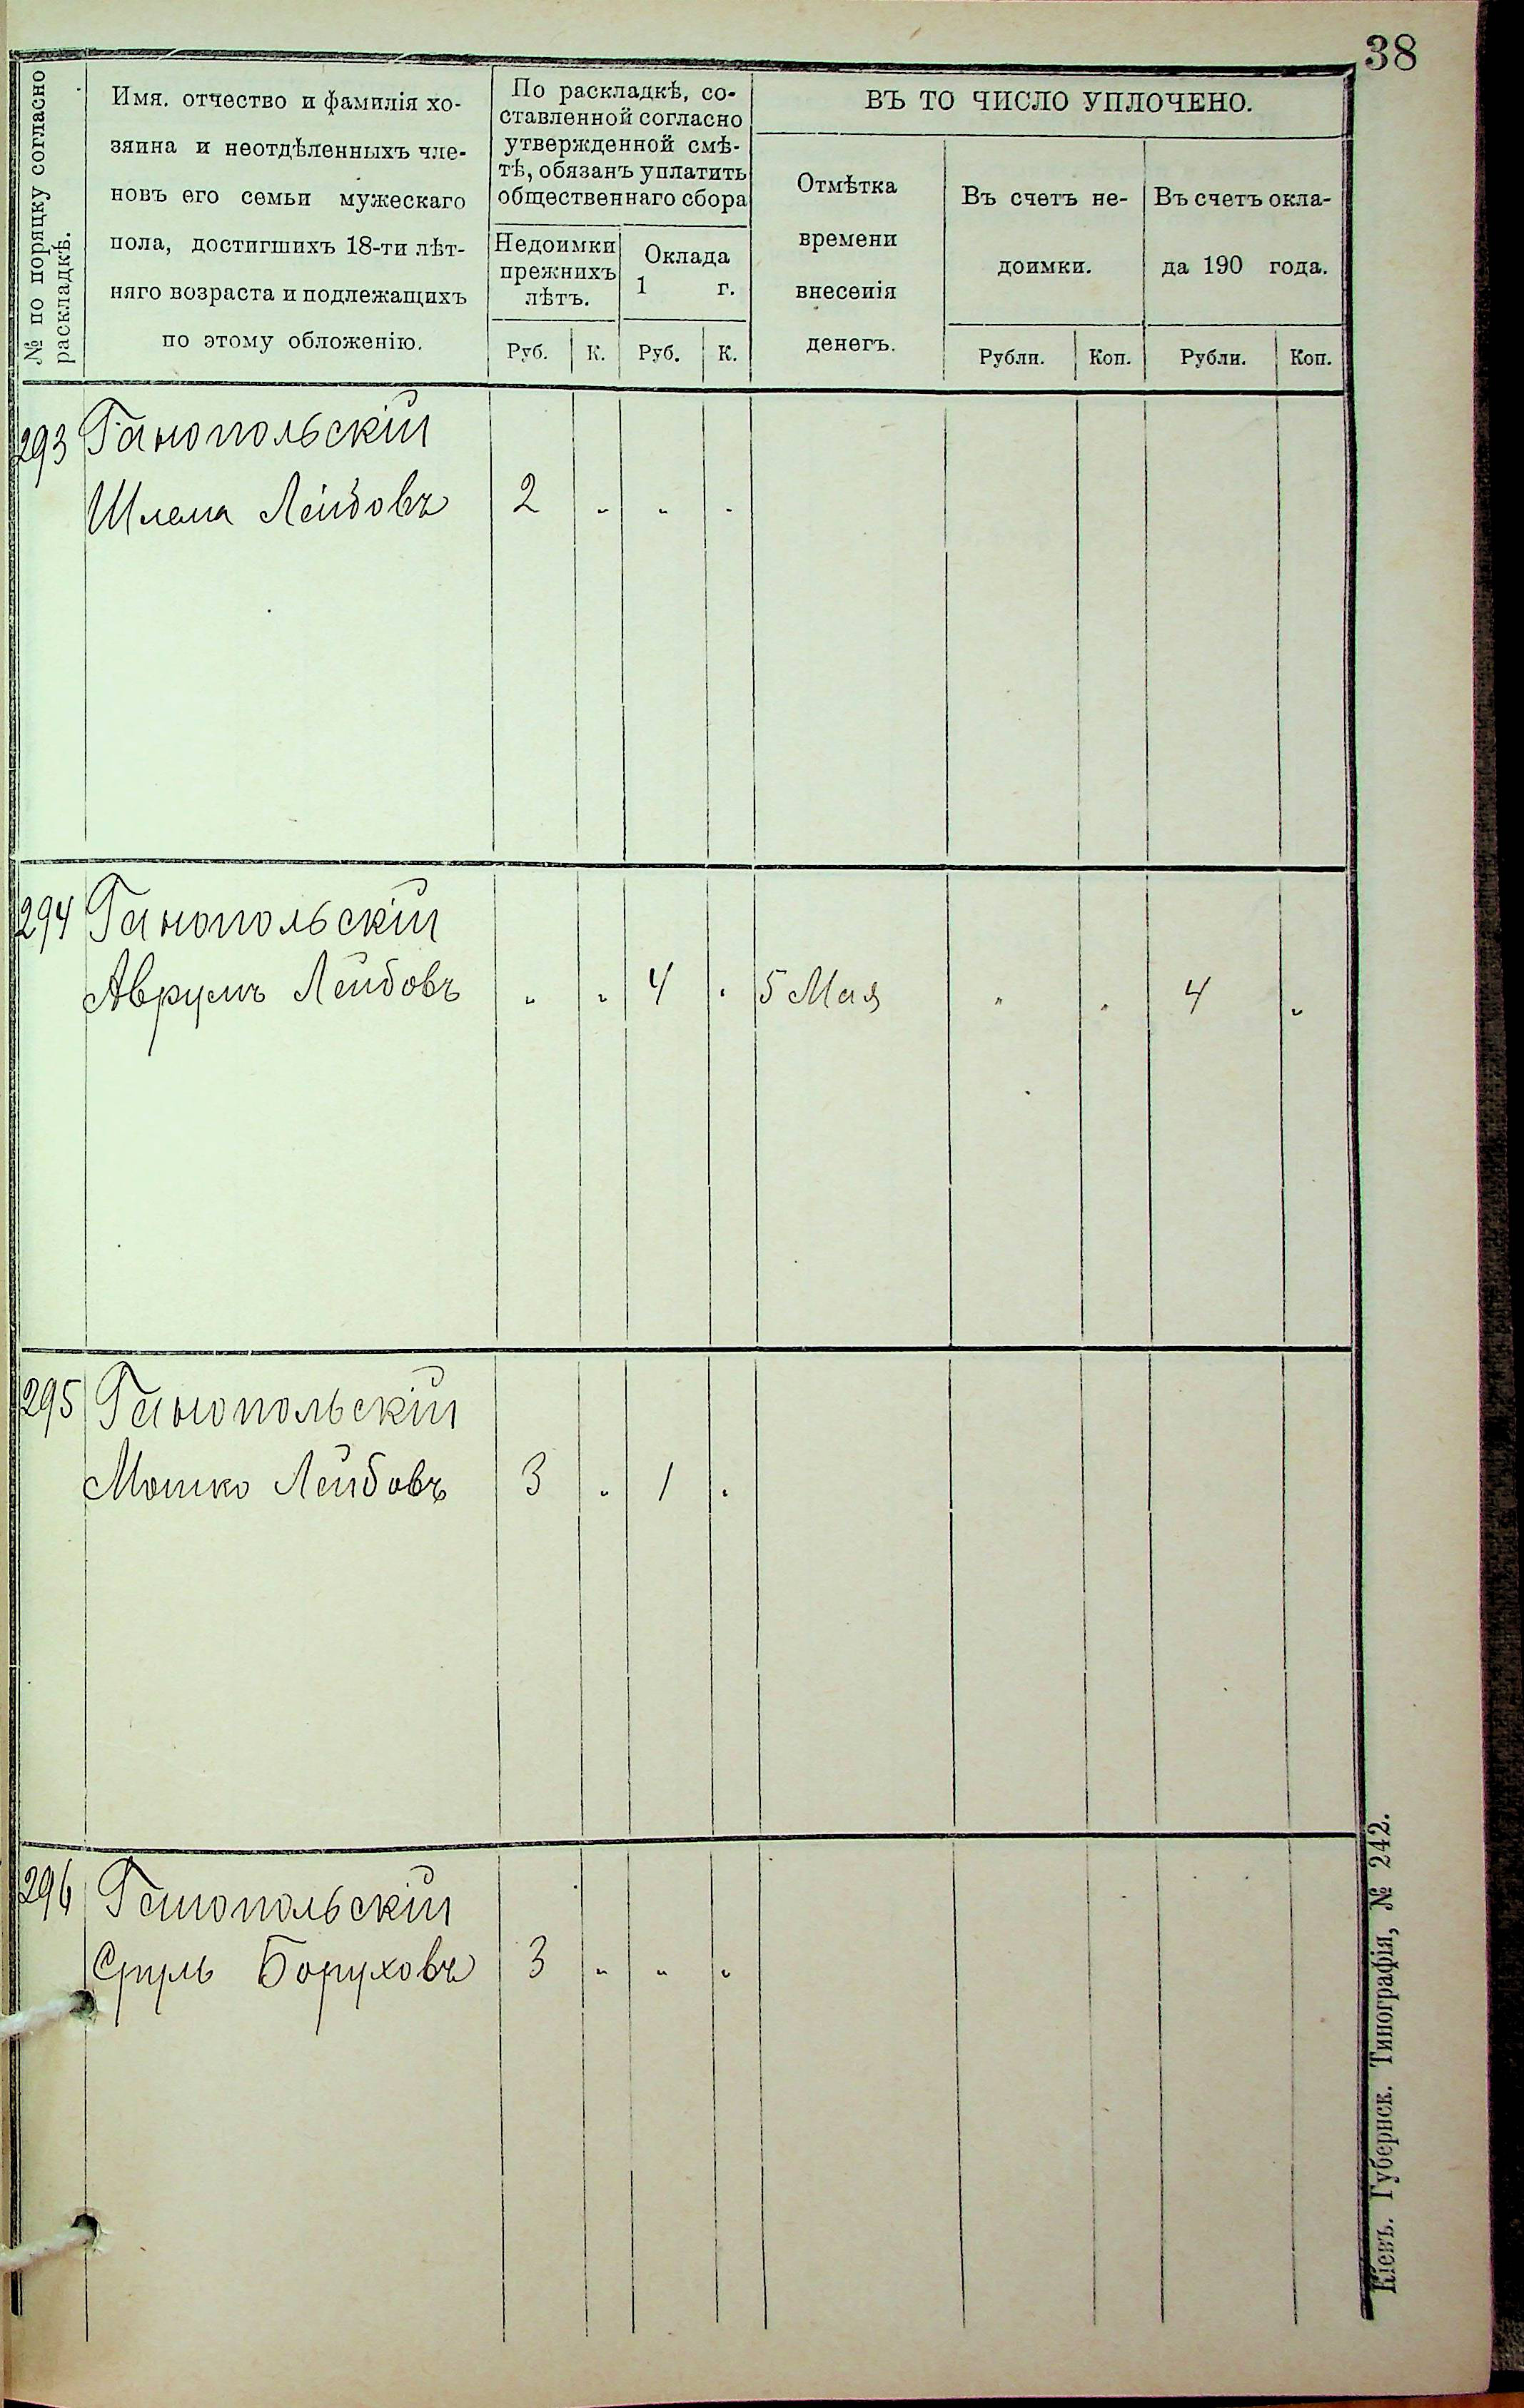 38
№ по порядку согласно
раскладкѣ.
Имя, отчество и фамилія хо-
зяина и неотдѣленныхъ чле-
новъ его семьи мужескаго
пола, достигшихъ 18-ти лѣт-
няго возраста и подлежащихъ
по этому обложенію.
По раскладкѣ, со-
ставленной согласно
утвержденной смѣ-
тѣ, обязанъ уплатить
общественнаго сбора
Недоимки
прежнихъ
лѣтъ.
Оклада
1 г.
Руб. К. Руб. К.
ВЪ ТО ЧИСЛО УПЛОЧЕНО.
Отмѣтка
времени
внесенія
денегъ.
Въ счетъ не-
доимки.
Въ счетъ окла-
да 190 года.
Рубли. Коп. Рубли. Коп.
293 Ганопольскій
Шлема Лейбовъ 2 " " "
294 Ганопольскій
Аврумъ Лейбовъ " " 4 " 5 Мая " " 4 "
295 Ганопольскій
Мошко Лейбовъ 3 " 1 "
296 Ганопольскій
Сруль Боруховъ 3 " " "
Кіевъ. Губернск. Типографія, № 242.